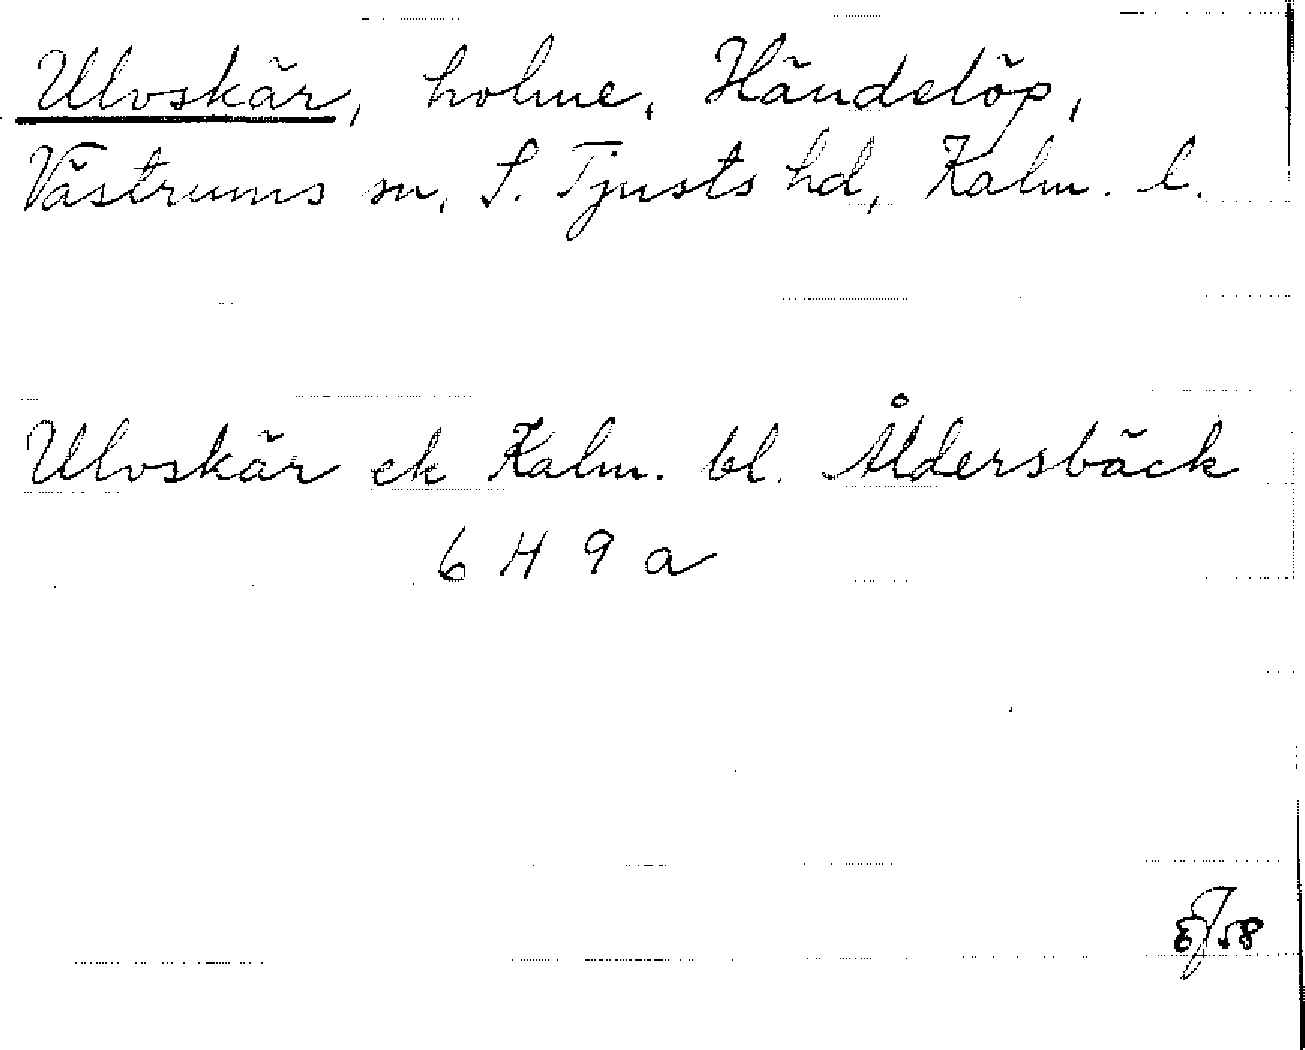 Ulvskär, holme, Händelöp,
Västrums sn, S. Tjusts hd, Kalm. l.
Ulvoskär ek Kalm. bl. Åldersbäck
6 H 9 a
EJ 58